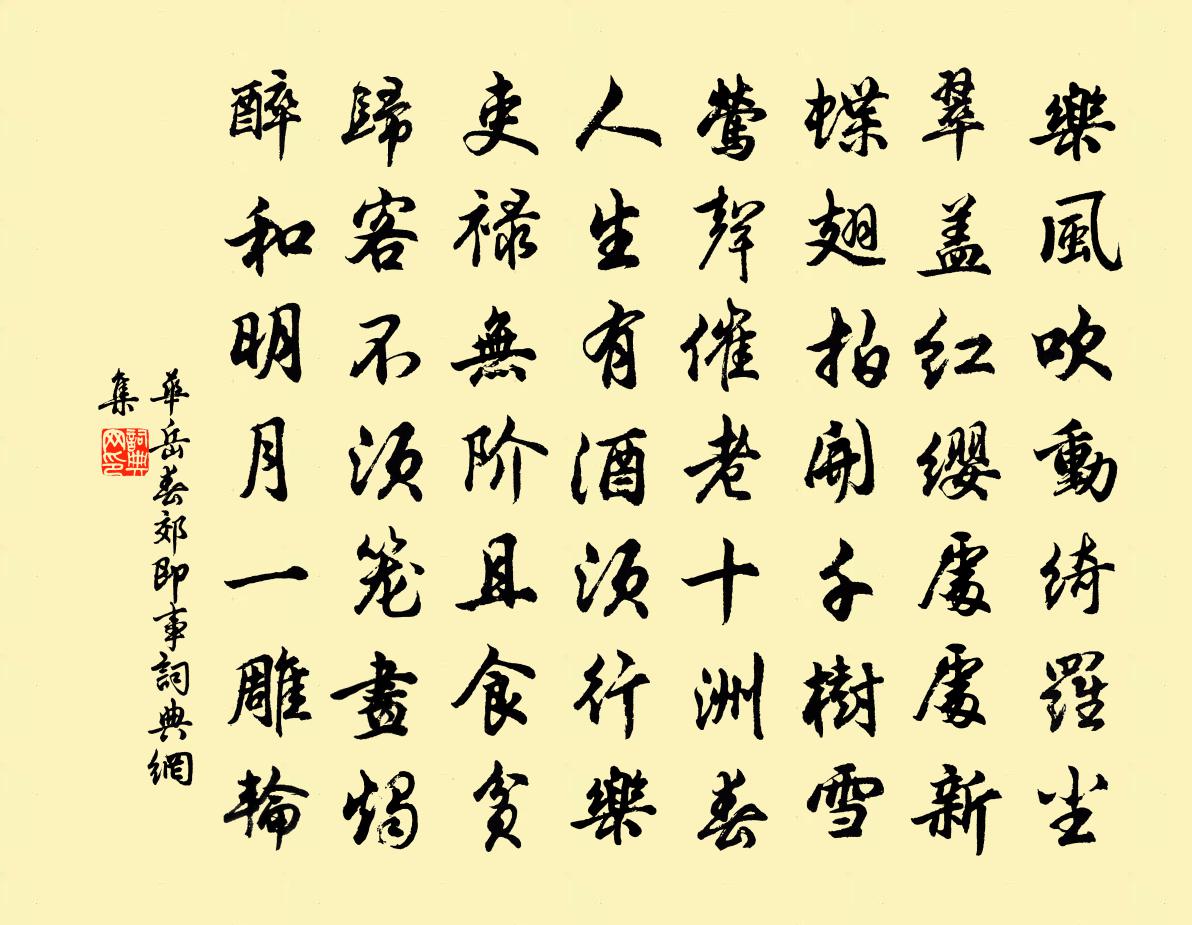 樂風吹動綺羅尘
翠盖红缨處處新
蝶翅拍開千樹雪
鶯聲催老十洲春
人生有酒须行樂
吏禄無阶且食貧
歸客不须笼畫燭
醉和明月一雕輪
華岳春郊即事詞典網
集
詞典
网印